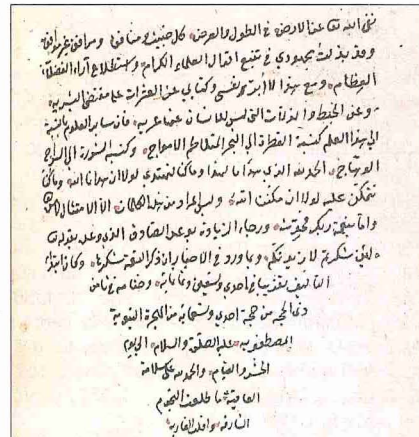 نفى الله تعالى عن الارض في الطول والعرض كل حنيف ومنافق ومرافق غير موافق
وقد بذلت مجهودي في تتبع اقوال العلماء الكرام واستطلاع آراء الفضلاء
العظام ومع هذا لا أبرئ نفسي وكتابي عن العثرات على مقتضى البشرية
وعن الخبط والزلات التي ليس للانسان عنها عريه فان سائر العلوم بالنسبة
الى هذا العلم كنسبة القطرة الى البحر المتلاطم الامواج وكنسبة الى السراج
الوهاج الحمد لله الذي هدانا لهذا وما كنا لنهتدي لولا ان هدانا الله وما كنا
نتمكن عليه لولا ان مكنت الله وليس المراد من هذه الكلمات الا الامتثال
واما بنعمة ربك فحدث ورجاء الزيادة بوعد الصادق الذي وعد بقوله تعالى
لئن شكرتم لازيدنكم وما ورد في الاخبار ان ذكر النعمة شكرها وكان ابتداء
التأليف في احدى وتسعين وثمانمائة وختامه في ثامن
ذي الحجة من حجة احدى وتسعمائة من الهجرة النبوية
المصطفوية عليه الصلوة والسلام الى يوم
الحشر والقيام والحمد لله على سلامة
العاقبة ما طلعت النجوم
الشارقة وافلت الغاربة